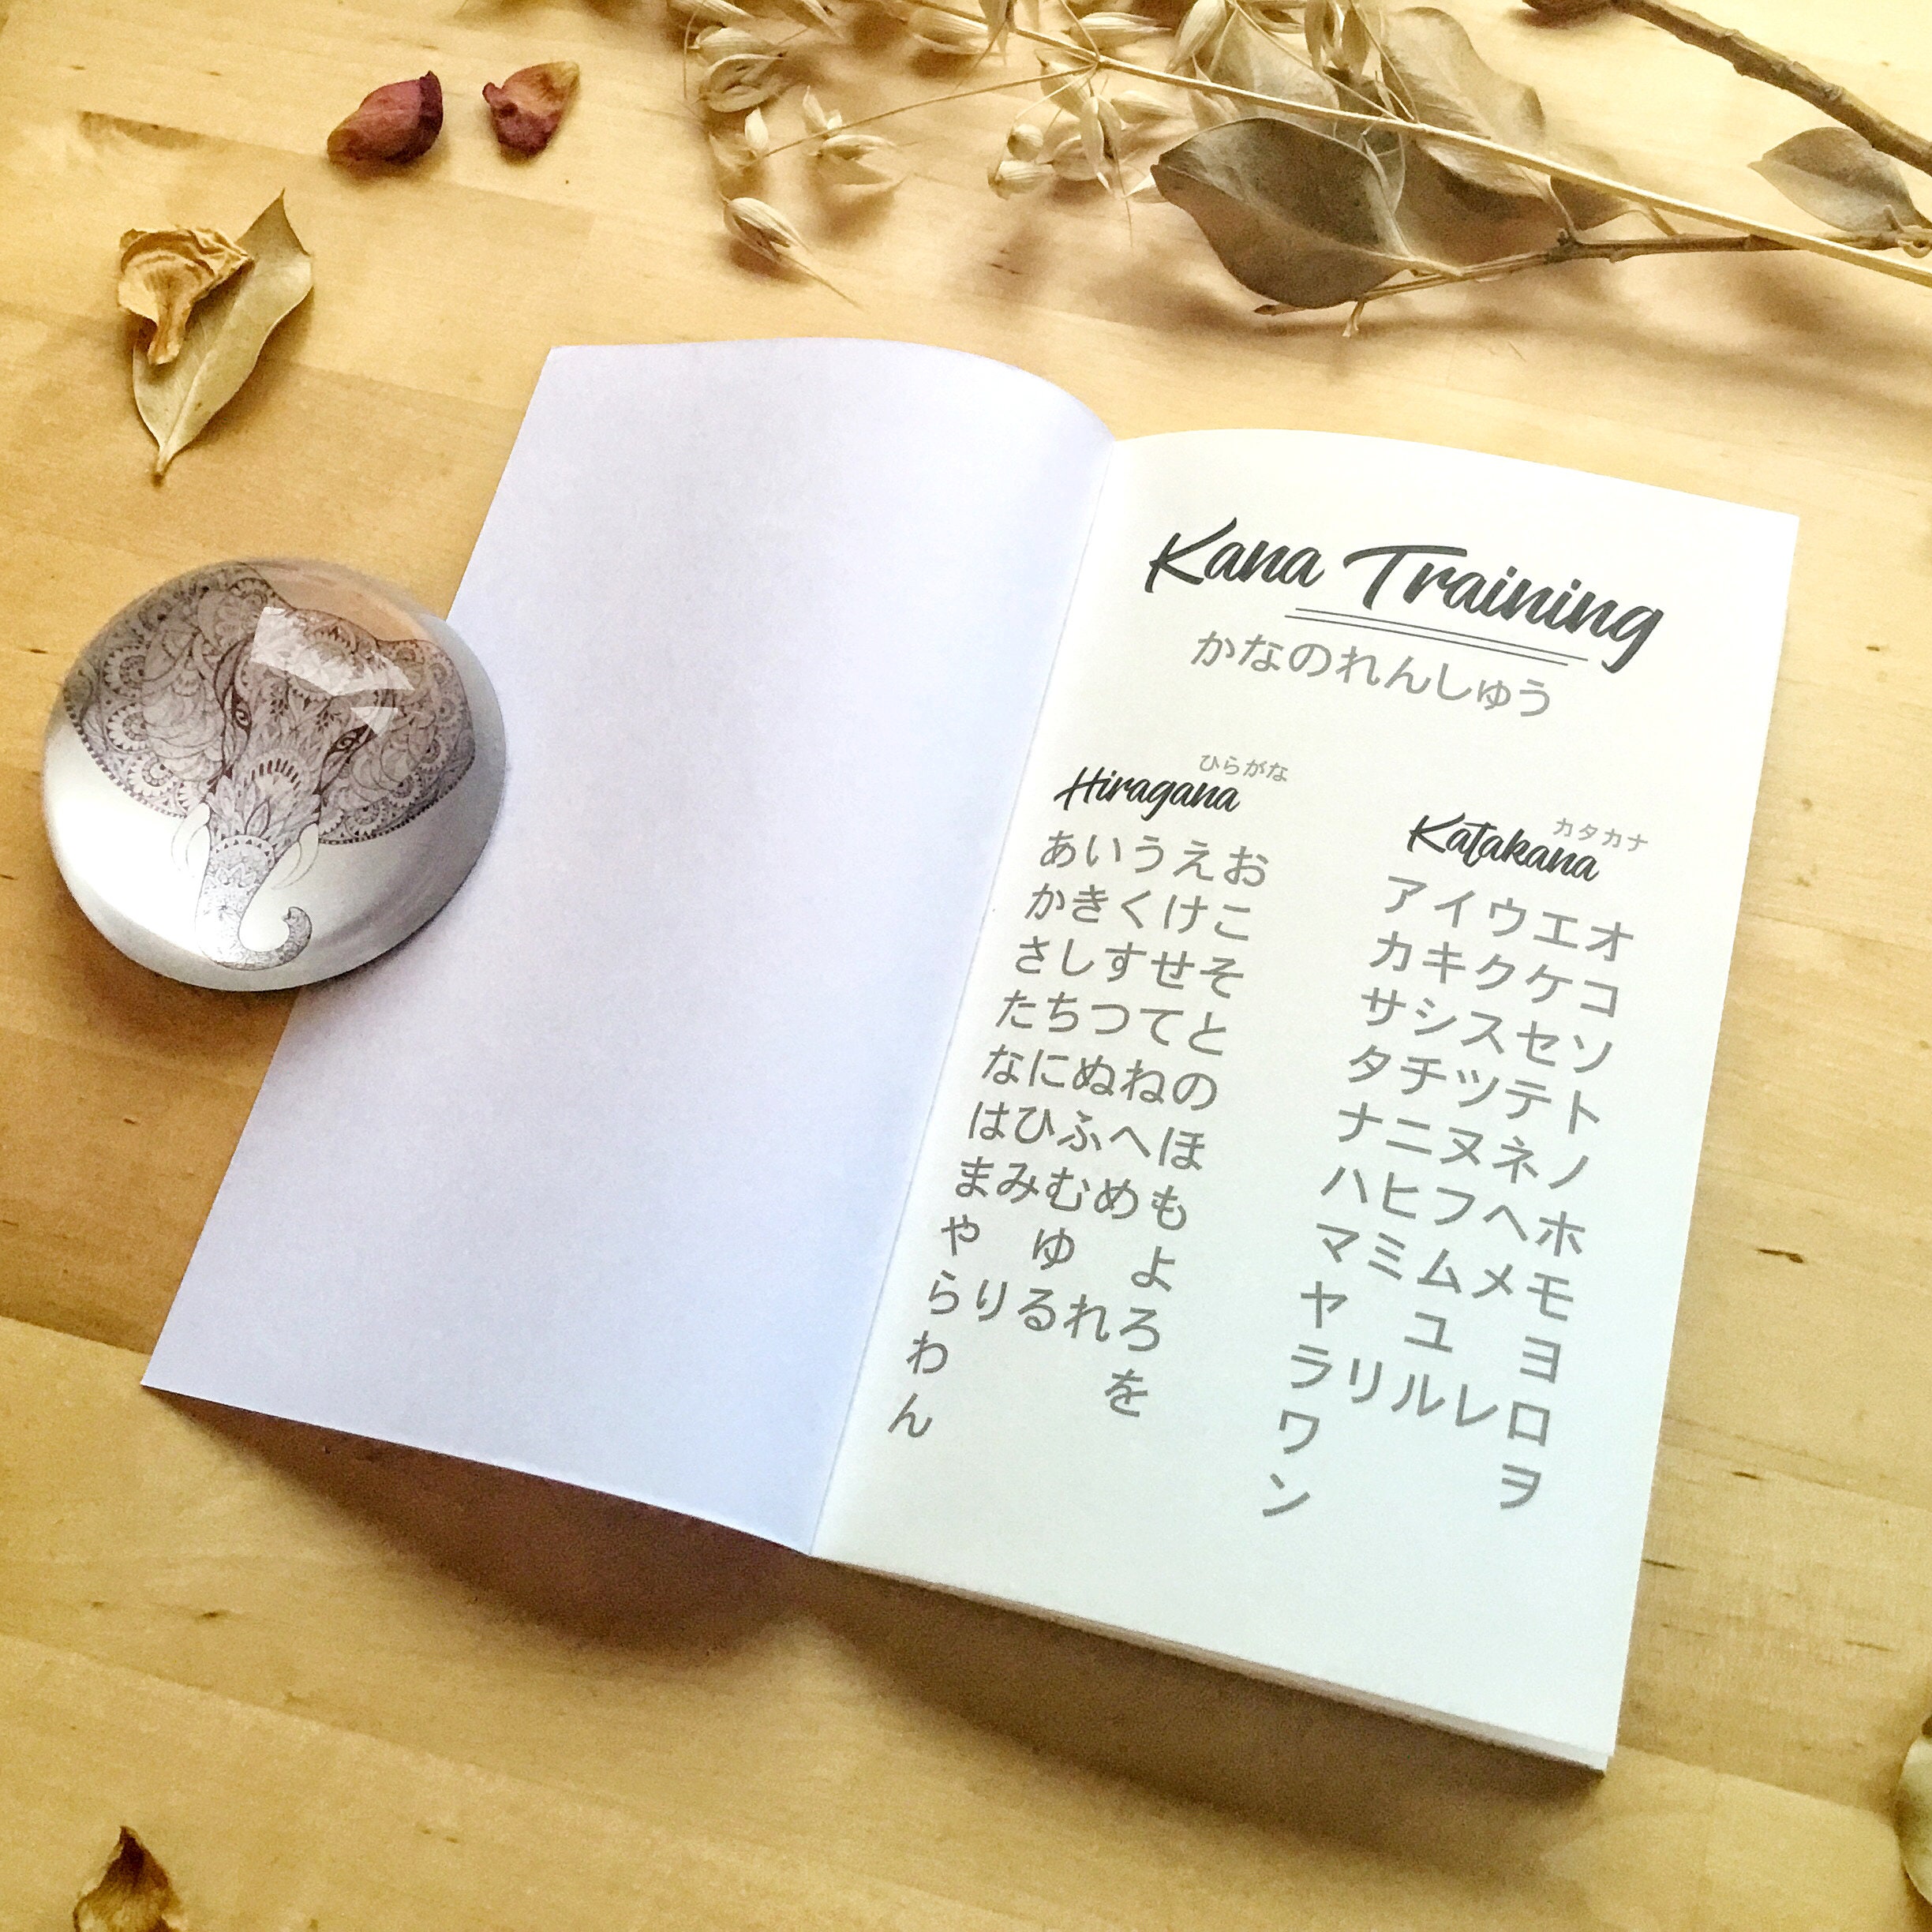 Kana Training
かなのれんしゅう
ひらがな
Hiragana
あいうえお
かきくけこ
さしすせそ
たちつてと
なにぬねの
はひふへほ
まみむめも
や ゆ よ
らりるれろ
わ を
ん
カタカナ
Katakana
アイウエオ
カキクケコ
サシスセソ
タチツテト
ナニヌネノ
ハヒフヘホ
マミムメモ
ヤ ユ ヨ
ラリルレロ
ワ ヲ
ン